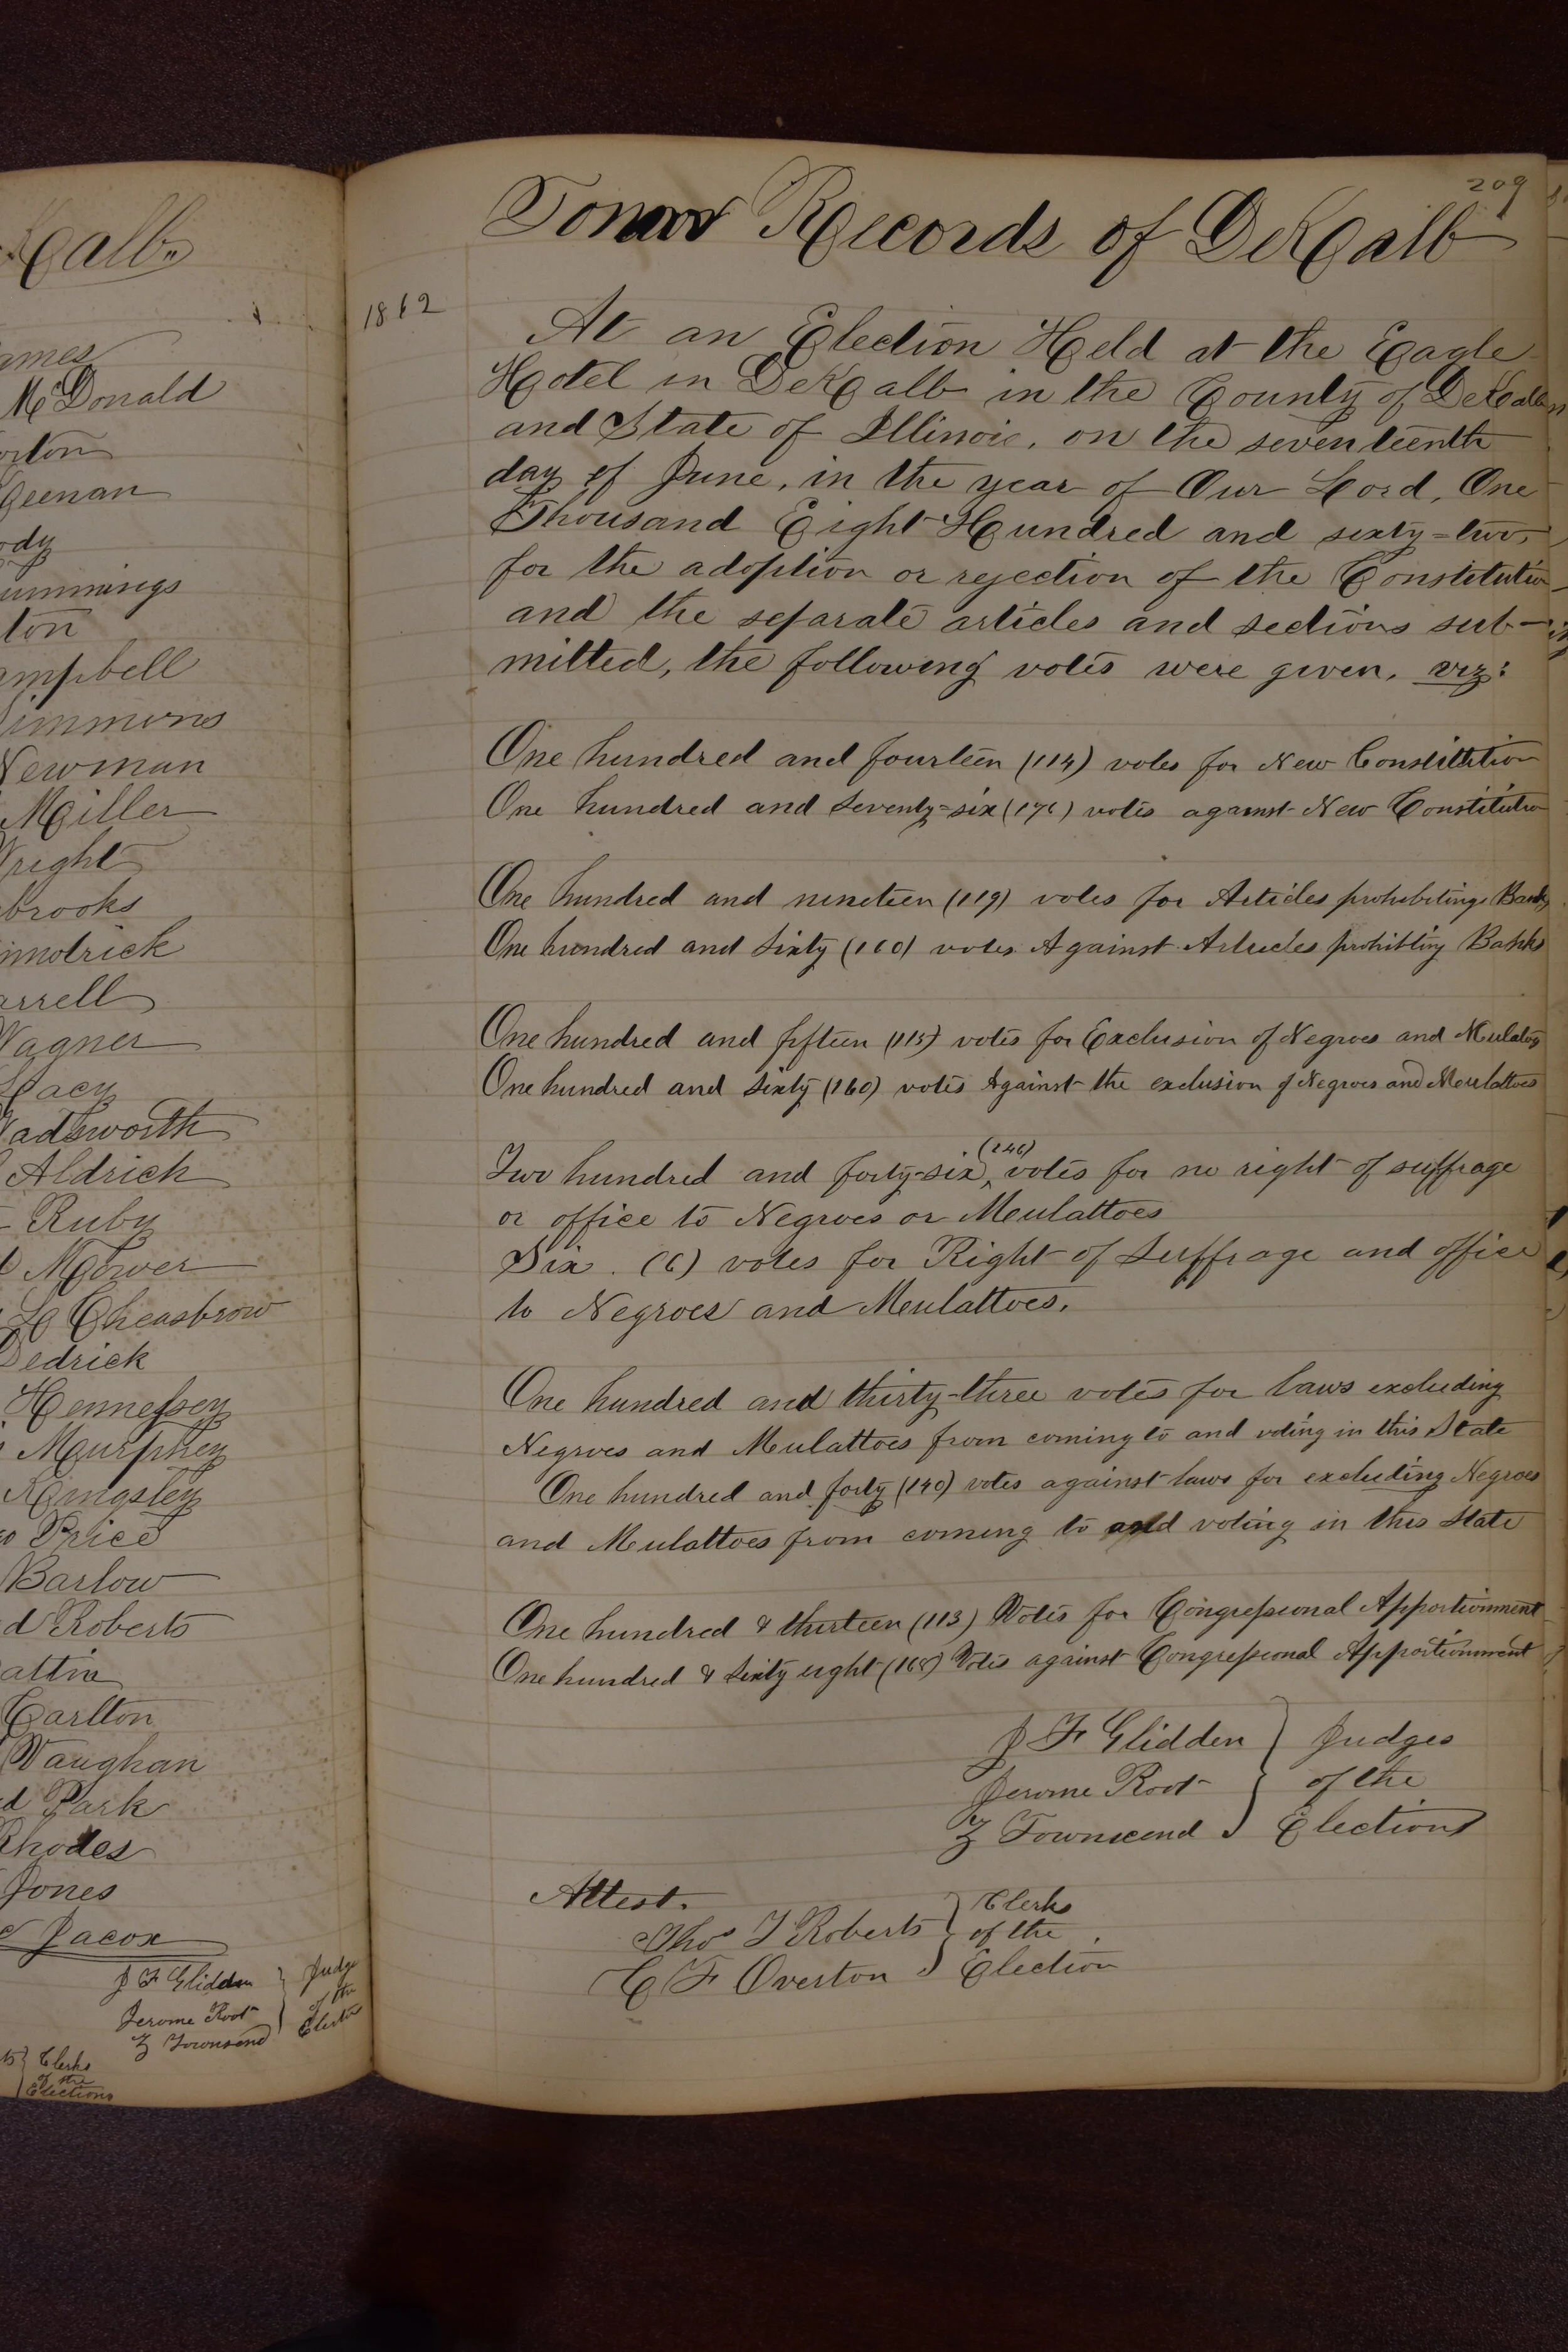 Kalb.
ames
McDonald
orton
Geenan
ody
ummings
ton
ampbell
immons
Newman
Miller
Wright
brooks
imotrick
arrell
Wagner
Lacey
Wadsworth
Aldrich
Ruby
Mower
L Cheasbrow
Dedrick
Hennessey
Murphey
Kingsley
Price
Barlow
d Roberts
attin
Carlton
Vaughan
d Park
Rhodes
Jones
Jacox
J F Glidden } Judge
Jerome Root } of the
Z Townsend } Election
ts } Clerks
of the
Elections
209
Town Records of DeKalb
1862
At an Election Held at the Eagle
Hotel in DeKalb in the County of DeKalb
and State of Illinois, on the seventeenth
day of June, in the year of Our Lord, One
Thousand Eight Hundred and sixty=two,
for the adoption or rejection of the Constitution
and the separate articles and sections sub-
mitted, the following votes were given, viz:
One hundred and fourteen (114) votes for New Constitution
One hundred and seventy=six (176) votes against New Constitution
One hundred and nineteen (119) votes for Articles prohibiting Banks
One hundred and sixty (160) votes Against Articles prohibting Banks
One hundred and fifteen (115) votes for Exclusion of Negroes and Mulatos
One hundred and sixty (160) votes Against the exclusion of Negroes and Mulattoes
Two hundred and forty-six (246) votes for no right of suffrage
or office to Negroes or Mulattoes
Six. (6) votes for Right of Suffrage and office
to Negroes and Mulattoes.
One hundred and thirty-three votes for laws excluding
Negroes and Mulattoes from coming to and voting in this State
One hundred and forty (140) votes against laws for excluding Negroes
and Mulattoes from coming to and voting in this State
One hundred & thirteen (113) Votes for Congressional Apportionment
One hundred & sixty eight (168) Votes against Congressional Apportionment
J F Glidden } Judges
Jerome Root } of the
Z Townsend } Election
Attest.
Thos T Roberts } Clerks
of the
C F Overton } Election